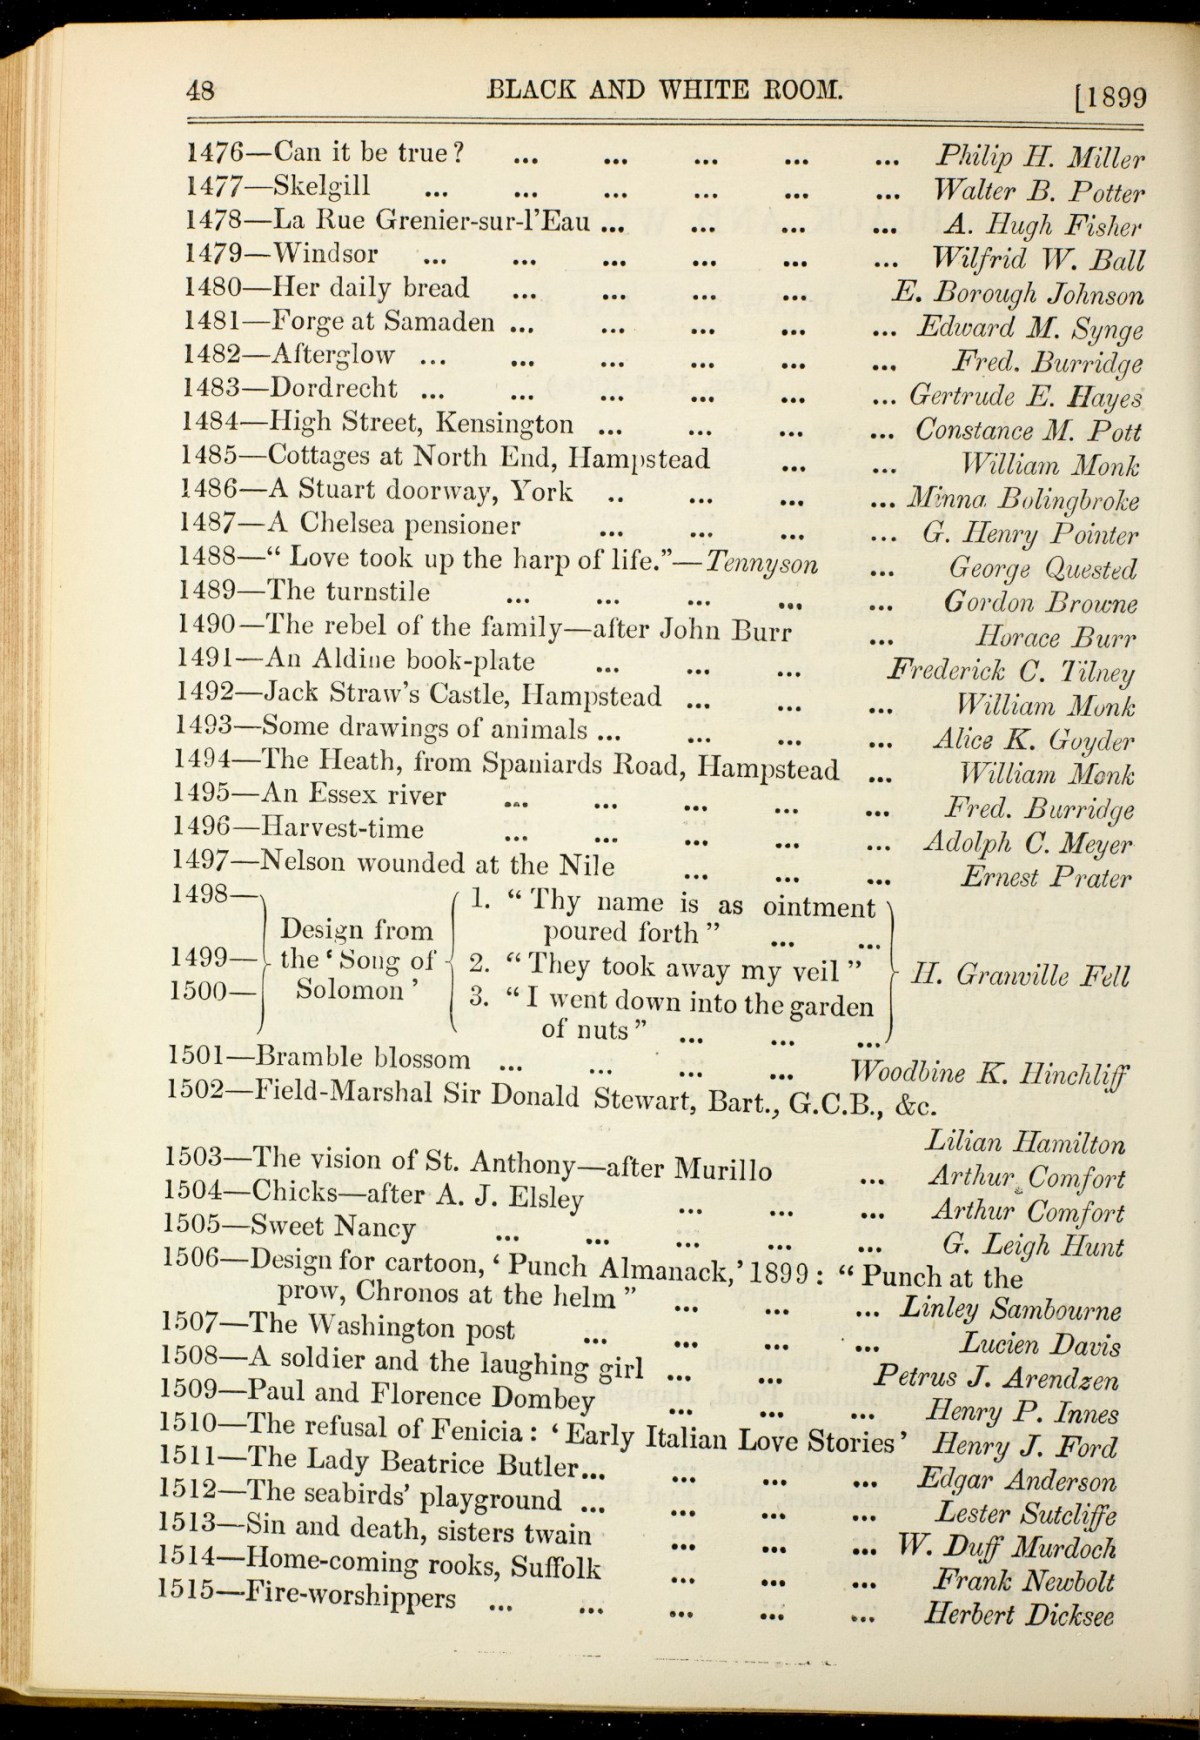 48 BLACK AND WHITE ROOM. [1899
1476—Can it be true? ... ... ... ... ... Philip H. Miller
1477—Skelgill ... ... ... ... ... ... Walter B. Potter
1478—La Rue Grenier-sur-l'Eau ... ... ... ... A. Hugh Fisher
1479—Windsor ... ... ... ... ... ... Wilfrid W. Ball
1480—Her daily bread ... ... ... ... E. Borough Johnson
1481—Forge at Samaden ... ... ... ... ... Edward M. Synge
1482—Afterglow ... ... ... ... ... ... Fred. Burridge
1483—Dordrecht ... ... ... ... ... ... Gertrude E. Hayes
1484—High Street, Kensington ... ... ... ... Constance M. Pott
1485—Cottages at North End, Hampstead ... ... William Monk
1486—A Stuart doorway, York .. ... ... ... Minna Bolingbroke
1487—A Chelsea pensioner ... ... ... ... G. Henry Pointer
1488—“ Love took up the harp of life.”—Tennyson ... George Quested
1489—The turnstile ... ... ... ... ... Gordon Browne
1490—The rebel of the family—after John Burr ... Horace Burr
1491—An Aldine book-plate ... ... ... Frederick C. Tilney
1492—Jack Straw's Castle, Hampstead ... ... ... William Monk
1493—Some drawings of animals ... ... ... ... Alice K. Goyder
1494—The Heath, from Spaniards Road, Hampstead ... William Monk
1495—An Essex river ... ... ... ... ... Fred. Burridge
1496—Harvest-time ... ... ... ... ... Adolph C. Meyer
1497—Nelson wounded at the Nile ... ... ... Ernest Prater
1498— 1. “ Thy name is as ointment
Design from poured forth ” ... ...
1499— the ‘ Song of 2. “ They took away my veil ” H. Granville Fell
1500— Solomon ’ 3. “ I went down into the garden
of nuts ” ... ... ...
1501—Bramble blossom ... ... ... ... Woodbine K. Hinchliff
1502—Field-Marshal Sir Donald Stewart, Bart., G.C.B., &c.
Lilian Hamilton
1503—The vision of St. Anthony—after Murillo ... Arthur Comfort
1504—Chicks—after A. J. Elsley ... ... ... Arthur Comfort
1505—Sweet Nancy ... ... ... ... ... G. Leigh Hunt
1506—Design for cartoon, ‘ Punch Almanack,’ 1899 : “ Punch at the
prow, Chronos at the helm ” ... ... ... Linley Sambourne
1507—The Washington post ... ... ... ... Lucien Davis
1508—A soldier and the laughing girl ... ... Petrus J. Arendzen
1509—Paul and Florence Dombey ... ... ... Henry P. Innes
1510—The refusal of Fenicia : ‘ Early Italian Love Stories ’ Henry J. Ford
1511—The Lady Beatrice Butler... ... ... ... Edgar Anderson
1512—The seabirds' playground ... ... ... ... Lester Sutcliffe
1513—Sin and death, sisters twain ... ... ... W. Duff Murdoch
1514—Home-coming rooks, Suffolk ... ... ... Frank Newbolt
1515—Fire-worshippers ... ... ... ... ... Herbert Dicksee